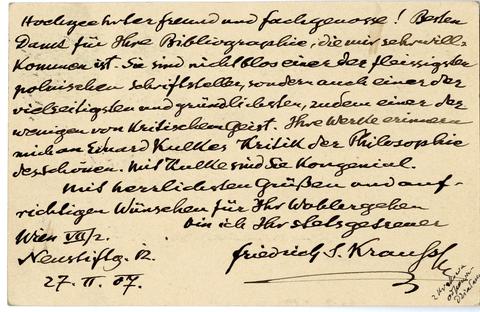 Hochgeehrter Freund und Fachgenosse! Besten
Dank für Ihre Bibliographie, die mir sehr will-
kommen ist. Sie sind nicht blos einer der fleissigsten
polnischen Schriftsteller, sondern auch einer der
vielseitigsten und gründlichsten, zudem einer der
wenigen von kritischem Geist. Ihre Werke erinnern
mich an Eduard Kulkes Kritik der Philosophie
des Schönen. Mit Kulke sind Sie kongenial.
Mit herzlichsten Grüßen und auf-
richtigen Wünschen für Ihr Wohlergehen
bin ich Ihr stets getreuer
Wien VII/2
Neustiftg. 12
Friedrich S. Krauss
27. II. 07.